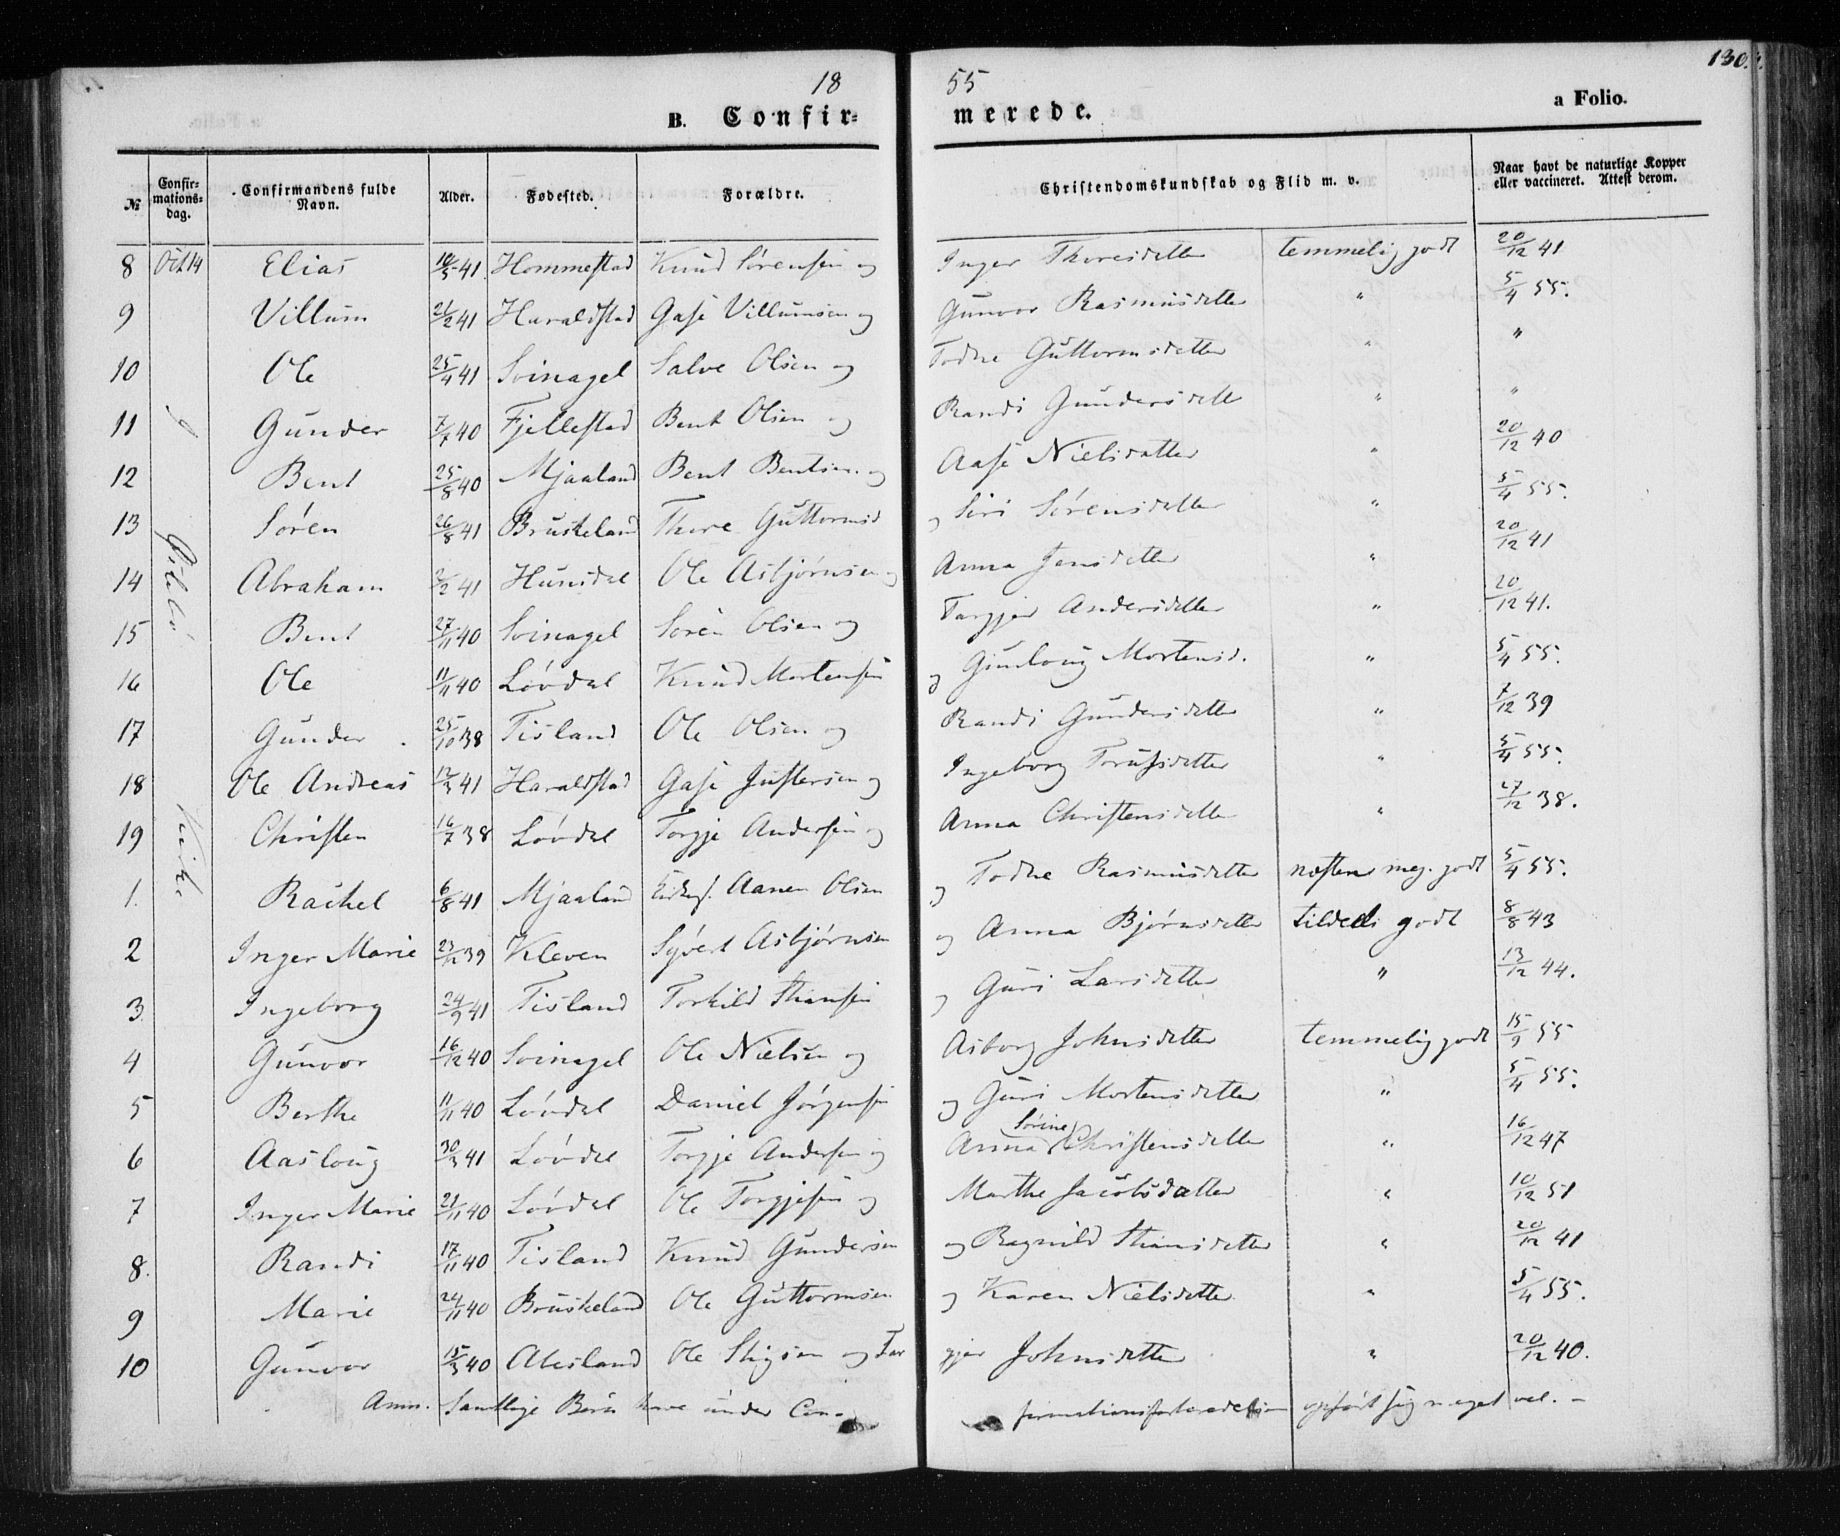 18 55 130.
B. Confir= merede. a Folio.
№ Confir-mations-dag. Confirmandens fulde Navn. Alder. Fødested. Forældre. Christendomskundskab og Flid m. v. Naar havt de naturlige Kopper eller vaccineret. Attest derom.
8 Oct 14 Elias 41 Hommestad Knud Sørensen og Inger Thoresdatter temmelig godt 20/12 41
9 Villum 21/2 41 Haraldstad Gase Villumsen og Gunvor Rasmusdatter " 5/4 55.
10 Ole 25/4 41 Svinagel Salve Olsen og Todne Guttormsdatter " "
11 i Gunder 7/7 40 Fjellestad Bent Olsen og Randi Gundersdatt " "
12 Bent 25/8 40 Mjaaland Bent Bentsen og Aase Nielsdatter " 20/12 40
13 Søren 26/8 41 Bruskeland Thore Guttormsd og Siri Sørensdatter " 5/4 55.
14 Abraham 2/2 41 Hunsdal Ole Asbjørnsen og Anna Jensdatter " 20/12 41
15 Bent 27/11 40 Svinagel Søren Olsen og Targjer Andersdatter " 20/12 41.
16 Ole 11/11 40 Løvdal Knud Mortensen og Gunloug Mortensd. " 5/4 55.
17 Gunder 25/10 38 Tisland Ole Olsen og Randi Gundersdatter " 7/12 39
18 Ole Andreas 12/3 41 Haraldstad Gase Justersen og Ingeborg datter " 5/4 55.
19 Kirke Christen 16/7 38 Løvdal Torgje Andersen og Anna Christensdatter " 27/12 38.
1. Rachel 6/8 41 Mjaaland Kirkes. Aanen Olsen og Todne Rasmusdatter næsten meg. godt 5/4 55.
2 Inger Marie 23/12 39 Kleven Syvert Asbjørnsen og Anna Bjørnsdatter tildels godt 8/8 43
3. Ingeborg 24/9 41 Tisland Torkild Stiansen og Guri Larsdatter " 13/12 44.
4 Gunvor 16/12 40 Svinagel Ole Nielsen og Asborg Johnsdatter temmelig godt 15/9 55
5 Berthe 11/11 40 Løvdal Daniel Jørgensen og Guri Mortensdatter " 5/4 55.
6 Aasloug 30/3 41 Løvdal Torgje Andersen og Anna Sørine Christensdatter " 16/12 47
7 Inger Marie 21/11 40 Løvdal Ole Torgjesen og Marthe Jacobsdatter " 10/12 51
8. Randi 17/11 40 Tisland Knud Gundersen og Ragnild Stiansdatter " 20/12 41
9 Marie 24/11 40 Bruskeland Ole Guttormsen og Karen Nielsdatter " 5/4 55.
10 Gunvor 15/3 40 Alesland Ole Stigsen og Targjer Johnsdatter " 20/12 40.
Anm. Samtlige Børn have under Confirmationsforberedelsen opført sig meget vel. –